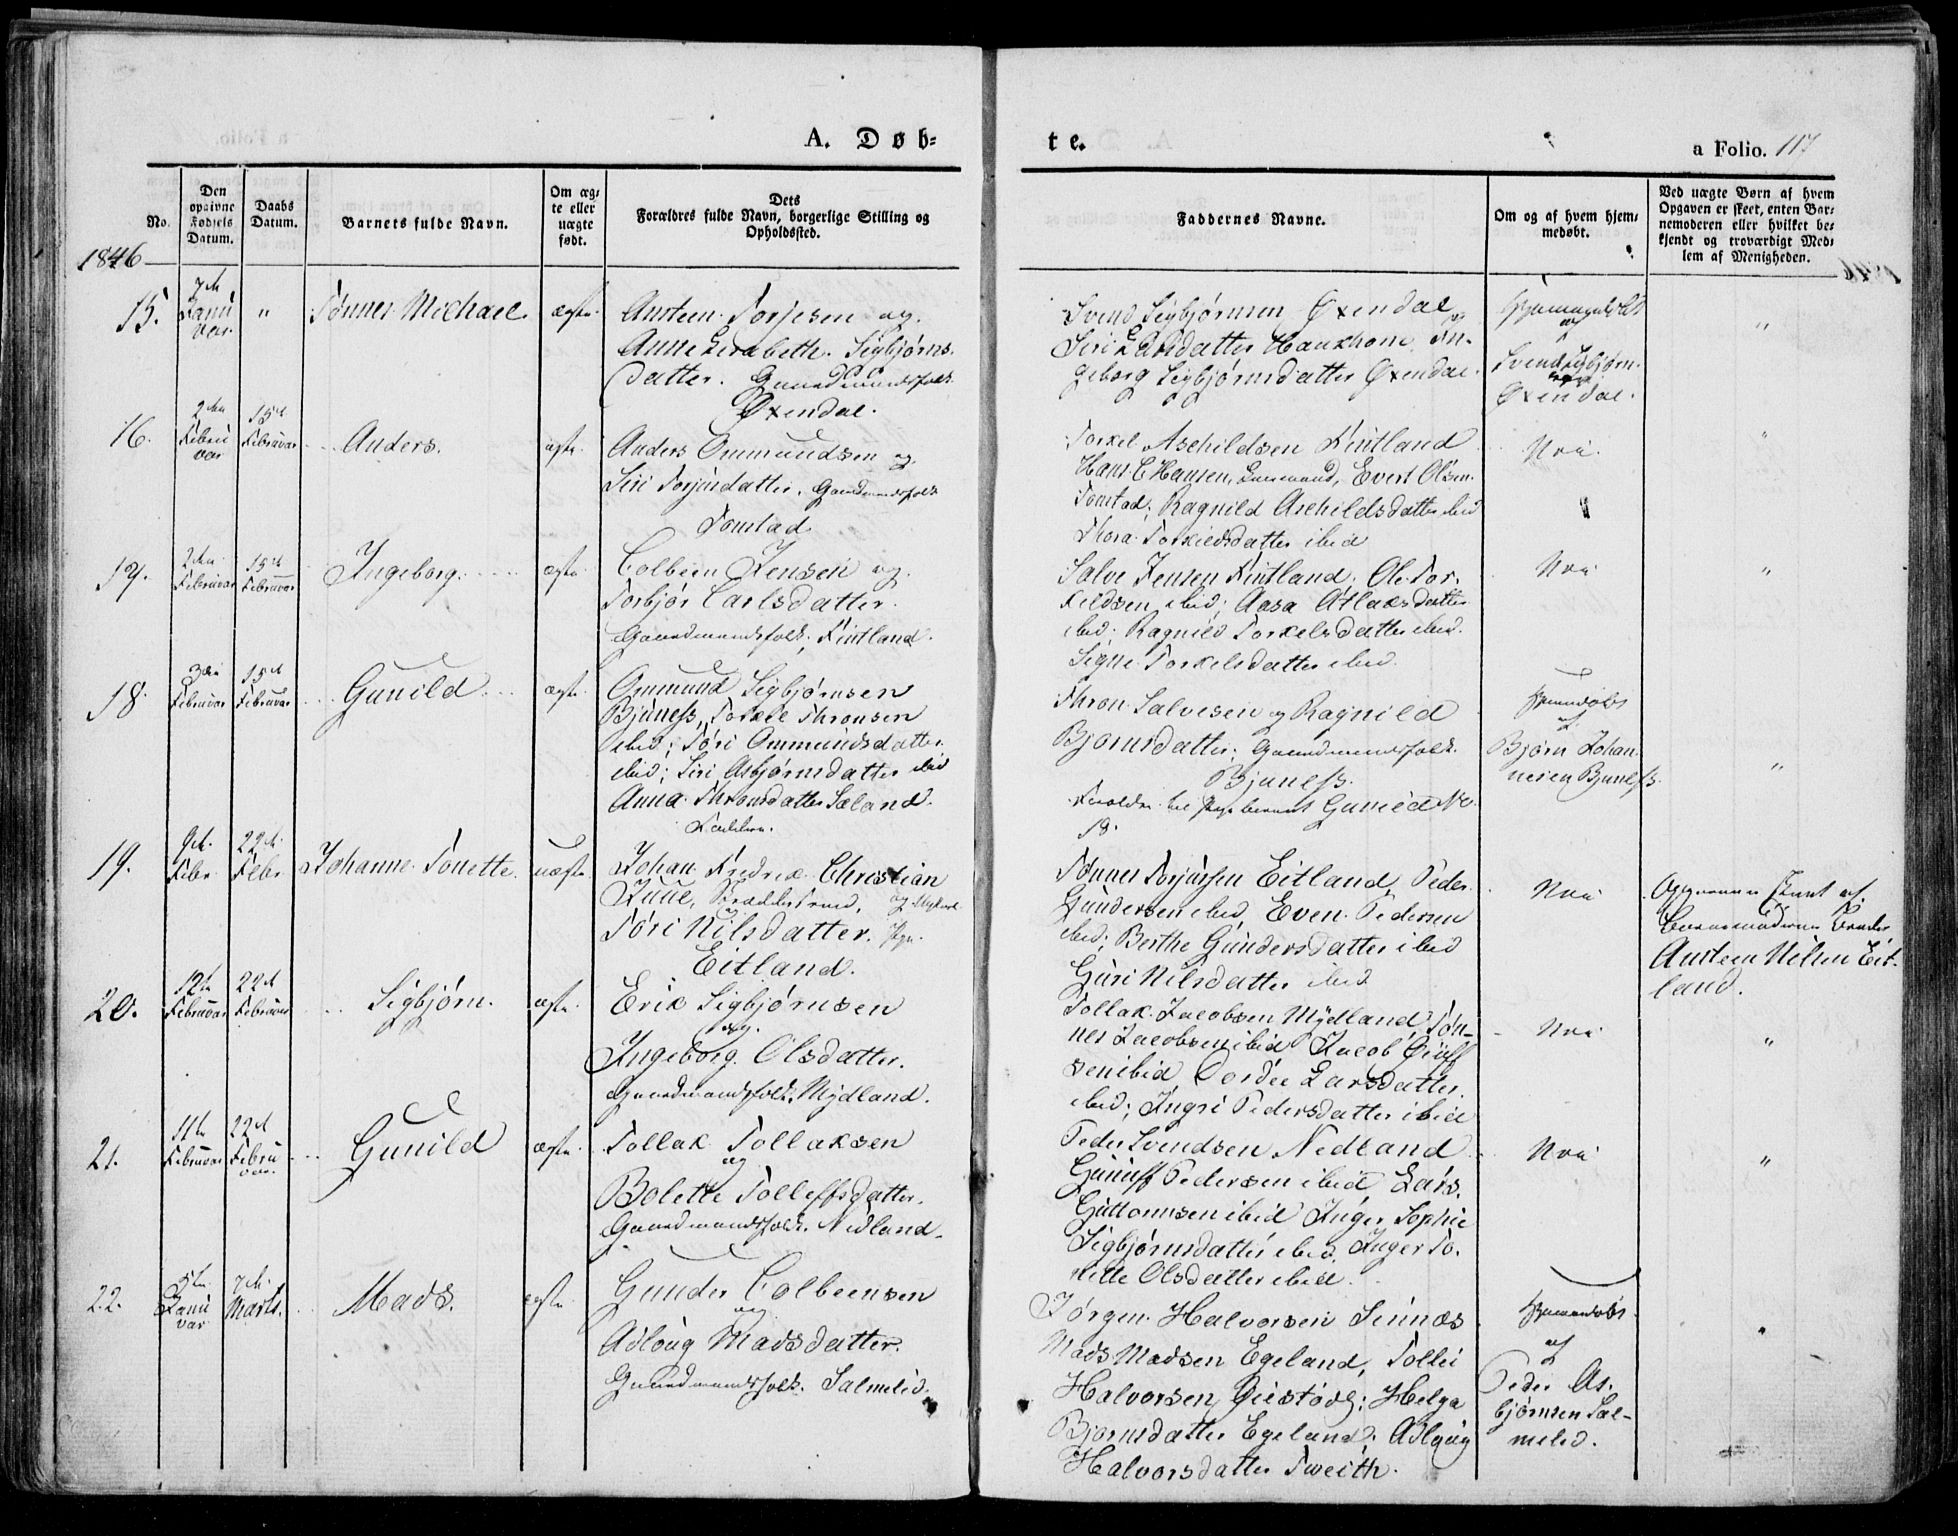 A. Døb-
te.
a Folio. 117
No.
Den
opgivne
Fødsels
Datum.
Daabs
Datum.
Barnets fulde Navn.
Om æg-
te eller
uægte
født.
Dets
Forældres fulde Navn, borgerlige Stilling og
Opholdssted.
Faddernes Navne.
Om og af hvem hjem-
medøbt.
Ved uægte Børn af hvem
Opgaven er skeet, enten Bar-
nemoderen eller hvilket be-
kjendt og troværdigt Med-
lem af Menigheden.
1846
15.
7de
Janu
var
"
Tønnes Michael
ægte.
Austeen Torjesen og
Anne Lisabeth Sigbjørns
datter. Gaardmandsfolk
Øxendal.
Svend Sigbjørnsen Øxendal
Siri Larsdatter Haukhom In-
geborg Sigbjørnsdatter Øxendal.
af
Svend Sigbjørn-
Øxendal.
"
16.
2den
Febru
var
15de
Februvar
Anders.
ægte.
Anders Ommundsen og
Siri Torjusdatter. Gaardmandsfolk
Tonstad
Torkel Aschildsen Fintland
Hans C Hansen, Evert Olsen
Tonstad; Ragnild Aschildsdatter ibid
Thora Torkildsdatter ibid
Nei
"
17.
2den
Februvar
15de
Februvar
Ingeborg.
ægte.
Colbeen Jensen og
Torbjør Carlsdatter
Gaardmandsfolk, Fintland.
Salve Jensen Fintland. Ole Tor-
kildsen ibid; Aasa Atlaksdatter
ibid; Ragnild Torkelsdatter ibid.
Signe Torkelsdatter ibid.
Nei
"
18.
3die
Februvar
15de
Februvar
Gunild
ægte.
Ommund Sigbjørnsen
Bjuness, Torkel Thronsen
ibid; Tøri Ommundsdatter
ibid; Siri Asbjørnsdatter ibid
Anna Thronsdatter Sæland.
Faddere.
Thron Salvesen og Ragnild
Bjørnsdatter. Gaardmandsfolk.
Bjuness.
Forældre til Pigebarnet Gunild No
18.
Hjemmedøbt
af
Bjørn Johan
nesen Bjuness.
"
19.
9de
Febr
22de
Febr
Johanne Tonette.
uægte.
Johan Fredrik Christian
Kuue, og
Tøri Nilsdatter. Pige.
Eitland.
Tønnes Torjussen Eitland Peder
Gundersen ibid, Even Pedersen
ibid; Berthe Gundersdatter ibid
Guri Nilsdatter ibid
Nei
Opgaven skeet af
Barnemoderens Broder
Austeen Nilsen Eit-
land.
20.
12te
Februvar
22de
Februvar
Sigbjørn.
ægte.
Erik Sigbjørnsen
og
Ingeborg Olsdatter.
Gaardmandsfolk. Mydland.
Tollak Jacobsen Mydland, Tøn-
nes Jacobsen ibid Jacob
sen ibid, Dordee Larsdatter
ibid; Ingri Pedersdatter ibid
Nei
"
21.
11te
Februvar
22de
Febru
var
Gunild
ægte.
Tollak Tollaksen
og
Bolette Tolleffsdatter.
Gaardmandsfolk. Nedland.
Peder Svendsen Nedland
Gunuff Pedersen ibid Lars
Guttormsen ibid Inger Sophie
Sigbjørnsdatter ibid. Inger To-
nette Olsdatter ibid.
Nei
"
22.
5te
Janu
var
7de
Marts.
Mads.
ægte
Gunder Colbeensen
og
Adloug Madsdatter.
Gaardmandsfolk. Salmelid.
Jørgen Halvorsen Sinnæs
Mads Madsen Egeland, Tollei
Halvorsen Qvistødl; Helga
Bjørnsdatter Egeland. Adloug
Halvorsdatter Tveith.
Hjemmedøbt
af
Peder As-
bjørnsen Sal-
melid.
"